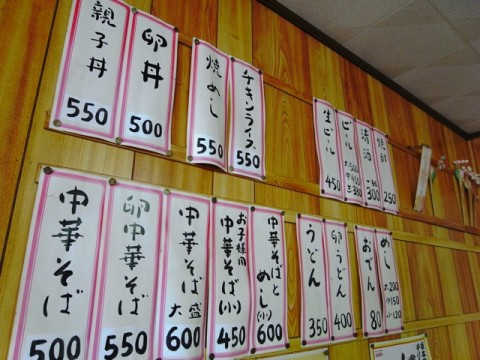 親子丼 550
卵丼 500
焼めし 550
チキンライス 550
生ビール 450
ビール 大500 中450 小380
清酒 一級 300
焼酎 250
中華そば 500
卵中華そば 550
中華そば 大盛 600
お子様用
中華そば(小) 450
中華そばと
めし(小) 600
うどん 350
卵うどん 400
おでん 80
めし 大200 中150 小120